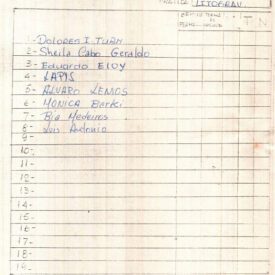 LITOREAU
T N
1- DOLORES I. TUAN
2- Sheila Cabo Geraldo
3- Eduardo Eloy
4- LAPIS
5- ALVARO LEMOS
6- MÔNICA Barki
7- Bia Medeiros
8- Luis Antonio
9-
10-
11-
12-
13-
14-
15-
16-
17-
18-
19-